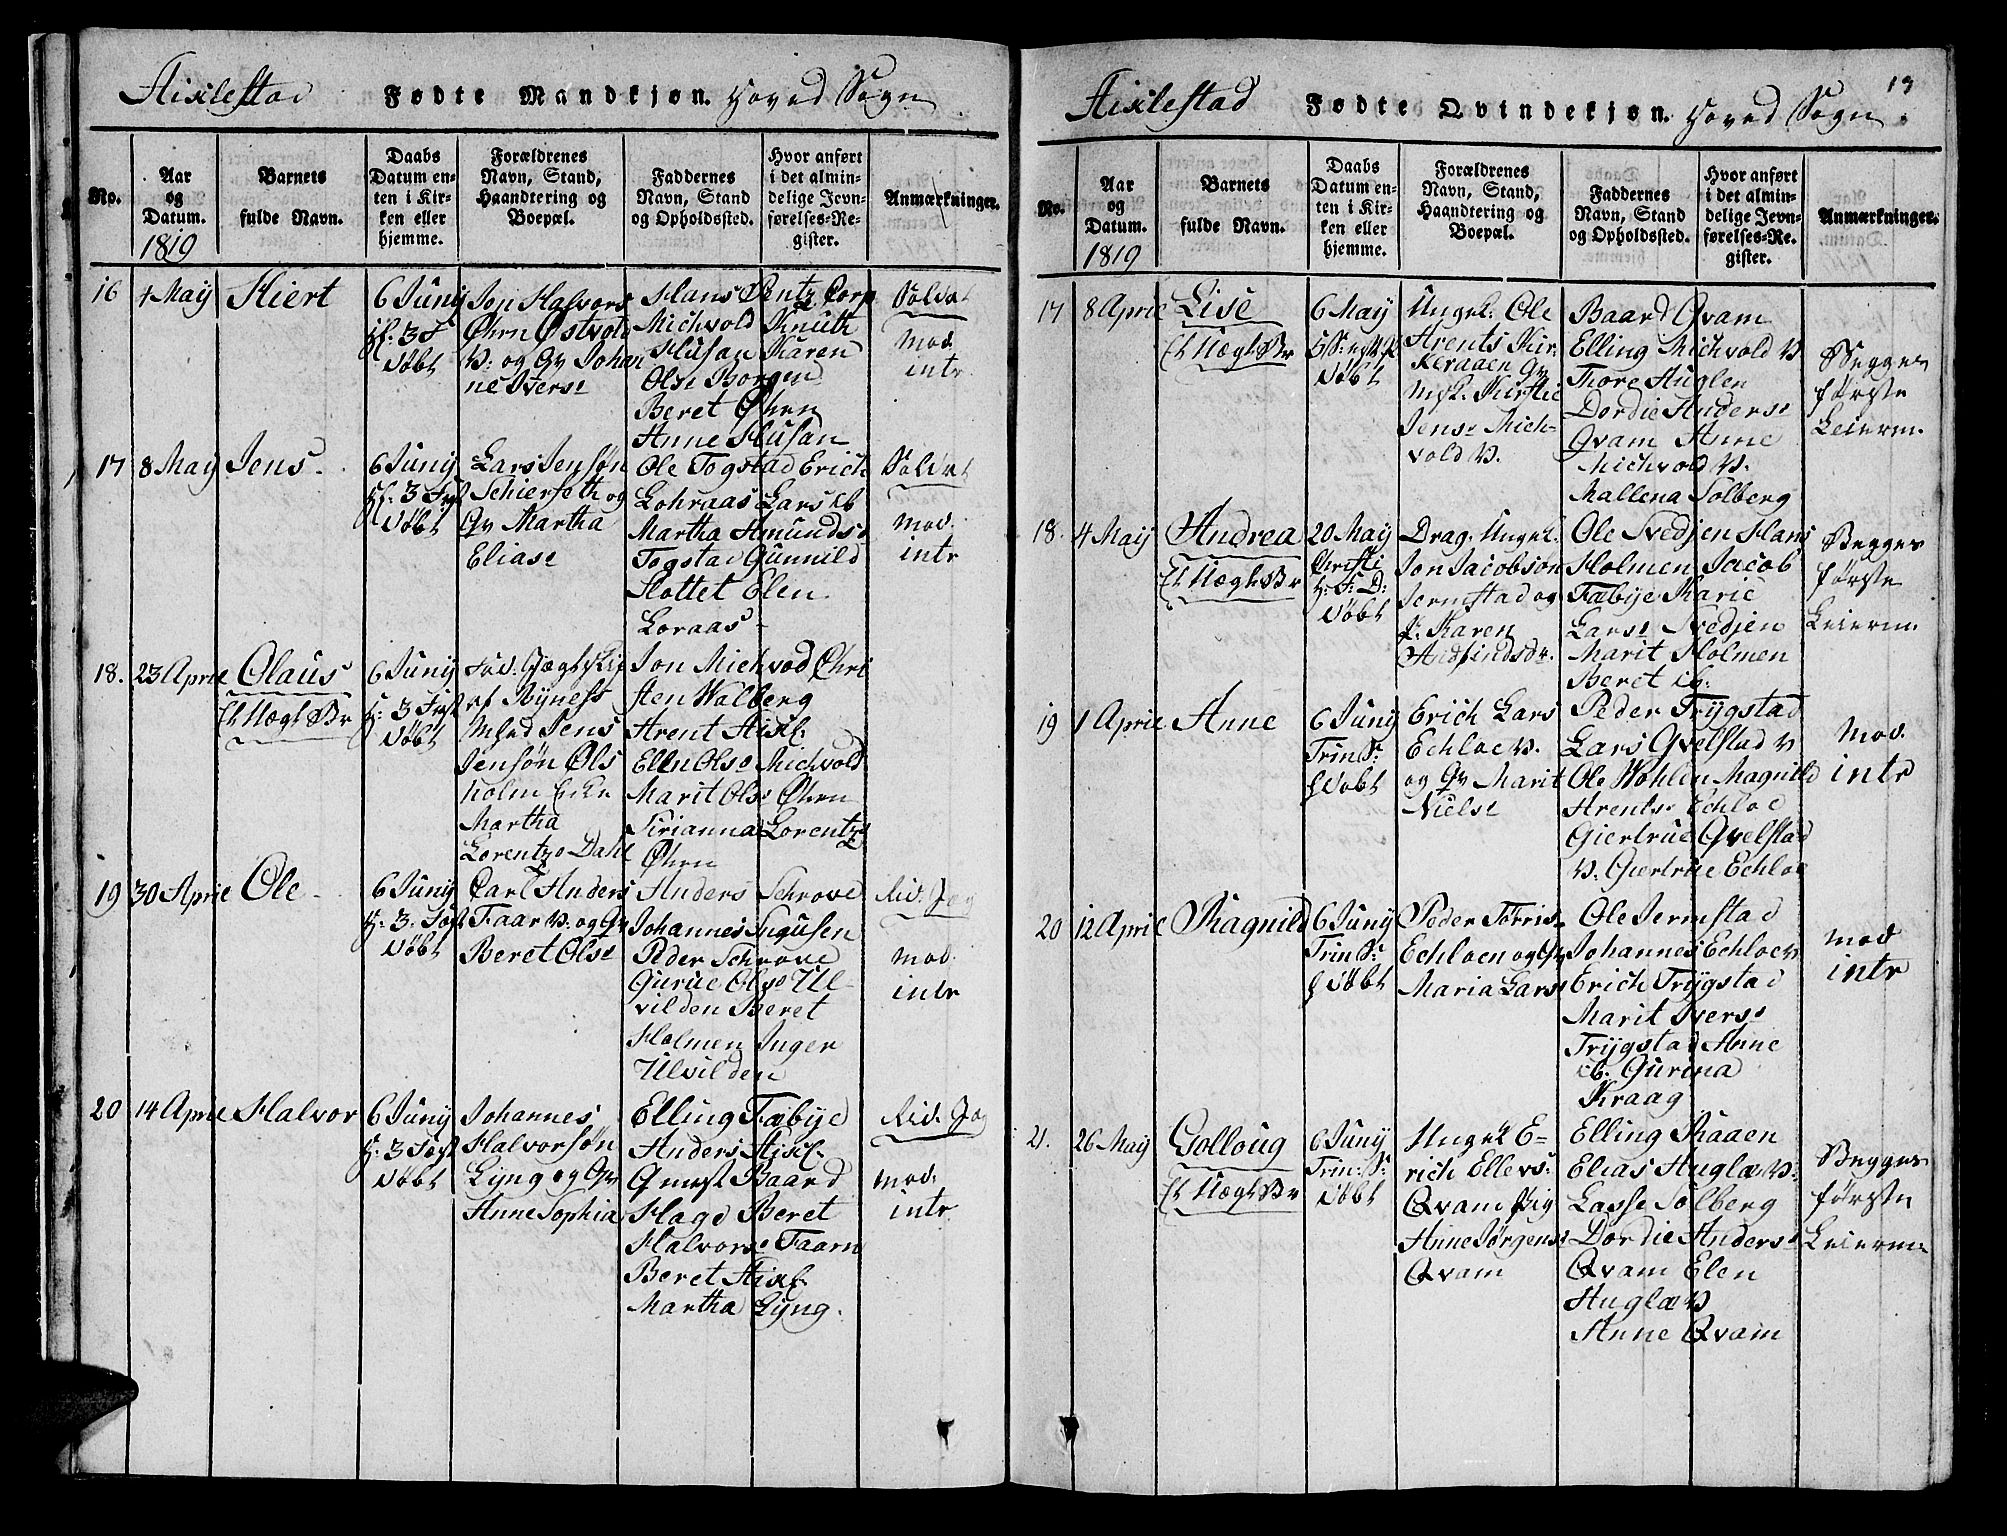 Aixlestad Fødte Mandkjøn. Hoved Sogn
No.
Aar
og
Datum.
1819
Barnets
fulde Navn.
Daabs
Datum en-
ten i Kir-
ken eller
hjemme.
Forældrenes
Navn, Stand,
Haandtering og
Boepæl.
Faddernes
Navn, Stand
og Opholdssted.
Hvor anført
i det almin-
delige Jevn-
førelses-Re-
gister.
Anmærkninger.
16 4 May Hiert
6 Juny
døbt
Jon Halvors
Øhrn Østvold
V: og Qv Johan
ne Iverse
Hans Corp
Michvold Knuth
Husan Karen
Olse Borgen
Beret Øhrn
Anne Husan
Soldat
mod.
intr.
17 8 May Jens
6 Juny
døbt
Lars Jensøn
Schierseth og
Qv Martha
Eliase
Ole Togstad Erich
Lohraas Lars ib
Martha Amunds
Togstad Gunnild
Slottet Elen
Loraas
Soldat
mod.
intr
18. 23 April Olaus
Et Uægt Br
6 Juny
døbt
Jens
Jensøn Øls
holm Enke
Martha
Lorentze Dahl
Jon Michvod Chri
sten Walberg
Arent Aixl.
Ellen Olse Michvold
Marit Olse Øhrn
Sirianna Lorentze
Øhrn
19 30 April Ole
6 Juny
døbt
Carl Anders
Faar V: og Qv
Beret Olse
Anders Schrove
Johannes Ingusen
Peder Schrove
Gurue Olse Ul-
vilden Beret
Holmen Inger
Ulvilden
Rid. Jæg
mod.
intr
20 14 April Halvor
6 Juny
døbt
Johannes
Halvorsøn
Lyng og Qv
Anne Sophia
Elling Fæbye
Anders Aixl.
Baard
Hage Beret
Halvorse Faarn
Beret Aixl.
Martha Lyng.
Rid. Jæg
mod.
intr
13
Aixlestad Fødte Qvindekjøn. Hoved Sogn.
No.
Aar
og
Datum.
1819
Barnets
fulde Navn.
Daabs
Datum en-
ten i Kir-
ken eller
hjemme.
Forældrenes
Navn, Stand,
Haandtering og
Boepæl.
Faddernes
Navn, Stand
og Opholdssted.
Hvor anført
i det almin-
delige Jevn-
førelses-Re-
gister.
Anmærkninger.
17 8 April Lise
Et Uægt Br
6 May
døbt
Ungk. Ole
Arents Kir-
keraaen Qv
Kirstie
Jense Mich-
vold V.
Baard Qvam
Elling Michvold V
Thore Huglen
Dordie Anderse
Qvam Anne
Michvold V.
Mallena Solberg
Begges
første
Leierm.
18. 4 May Andrea
Et Uægt Br
20 May
Christi
H: F: D:
døbt
Drag. Ungk.
Jon Jacobsøn
Jermstad og
P. Karen
Andfindsdr.
Ole Svedjen Hans
Holmen Jacob
Fæbye Marie
Larse Svedjen
Marit Holmen
Beret ig.
Begges
første
Leierm.
19 1 April Anne
6 Juny
Trin S:
døbt
Erich Lars
Echloe V.
og Qv Marit
Nielse
Peder Trygstad
Lars Qvelstad V
Ole Wohlen Magnild
Arentse Echloe
Giertrue Qvelstad
V. Giertrue Echloe
mod.
intr
20 12 April Ragnild
6 Juny
Trin S:
døbt
Peder Torris-
Echloen og Qv
Maria Larse
Ole Jermstad
Johannes Echloe V.
Erich Trygstad
Marit Iverse
Trygstad Anne
ib. Gurina
Kraag
mod
intr
21. 26 May Golloug
Et Uægt Br
6 Juny
Trin: S:
døbt
Ungk E-
rich Ellevs:
Qvam Pig
Anne Jørgense
Qvam
Elling Raaen
Elias Huglæ V:
Lasse Solberg
Dordie Anderse
Qvam Elen
Huglæ V
Anne Qvam
Begges
første
Leierm.